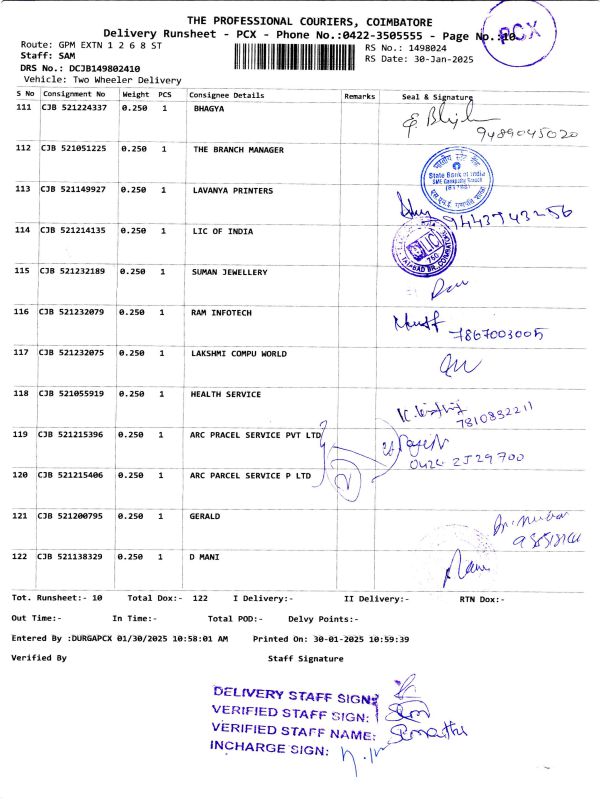 THE PROFESSIONAL COURIERS, COIMBATORE
Delivery Runsheet - PCX - Phone No.:0422-3505555 - Page No.:10
PCX
Route: GPM EXTN 1 2 6 8 ST
RS No.: 1498024
Staff: SAM
RS Date: 30-Jan-2025
DRS No.: DCJB149802410
Vehicle: Two Wheeler Delivery
S No Consignment No Weight PCS Consignee Details Remarks Seal & Signature
111 CJB 521224337 0.250 1 BHAGYA
9489045020
112 CJB 521051225 0.250 1 THE BRANCH MANAGER
भारतीय स्टेट बैंक
State Bank of India
113 CJB 521149927 0.250 1 LAVANYA PRINTERS
9443943256
114 CJB 521214135 0.250 1 LIC OF INDIA
LIC
115 CJB 521232189 0.250 1 SUMAN JEWELLERY
116 CJB 521232079 0.250 1 RAM INFOTECH
7867003005
117 CJB 521232075 0.250 1 LAKSHMI COMPU WORLD
118 CJB 521055919 0.250 1 HEALTH SERVICE
7810832211
119 CJB 521215396 0.250 1 ARC PRACEL SERVICE PVT LTD
0424 2529700
120 CJB 521215406 0.250 1 ARC PARCEL SERVICE P LTD
121 CJB 521200795 0.250 1 GERALD
122 CJB 521138329 0.250 1 D MANI
Mani
Tot. Runsheet:- 10 Total Dox:- 122 I Delivery:- II Delivery:- RTN Dox:-
Out Time:- In Time:- Total POD:- Delvy Points:-
Entered By :DURGAPCX 01/30/2025 10:58:01 AM Printed On: 30-01-2025 10:59:39
Verified By Staff Signature
DELIVERY STAFF SIGN:
VERIFIED STAFF SIGN:
VERIFIED STAFF NAME:
INCHARGE SIGN: